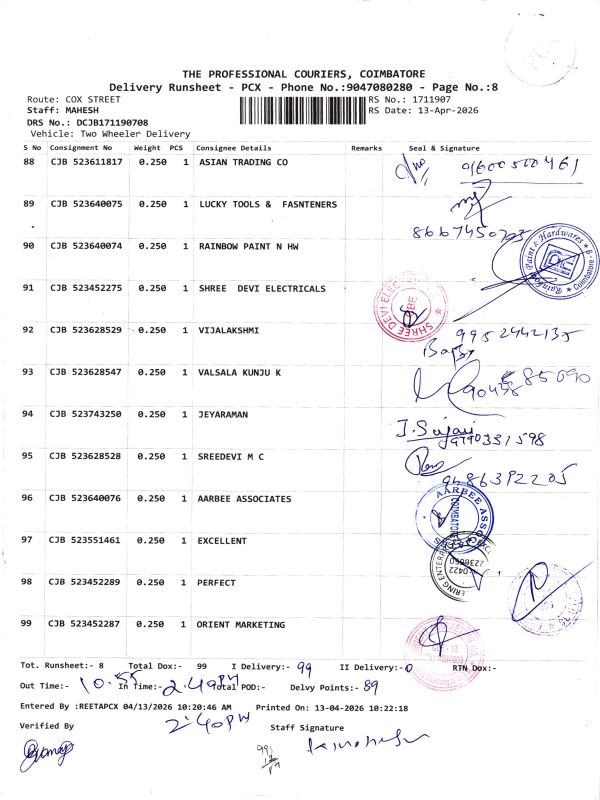 THE PROFESSIONAL COURIERS, COIMBATORE
Delivery Runsheet - PCX - Phone No.:9047080280 - Page No.:8
Route: COX STREET RS No.: 1711907
Staff: MAHESH RS Date: 13-Apr-2026
DRS No.: DCJB171190708
Vehicle: Two Wheeler Delivery
S No Consignment No Weight PCS Consignee Details Remarks Seal & Signature
88 CJB 523611817 0.250 1 ASIAN TRADING CO 9600500461
89 CJB 523640075 0.250 1 LUCKY TOOLS & FASNTENERS
90 CJB 523640074 0.250 1 RAINBOW PAINT N HW
91 CJB 523452275 0.250 1 SHREE DEVI ELECTRICALS
SHREE DEVI ELECTRI
92 CJB 523628529 0.250 1 VIJALAKSHMI 9952442135
93 CJB 523628547 0.250 1 VALSALA KUNJU K
94 CJB 523743250 0.250 1 JEYARAMAN
95 CJB 523628528 0.250 1 SREEDEVI M C 9486392205
96 CJB 523640076 0.250 1 AARBEE ASSOCIATES
AARBEE ASSO
97 CJB 523551461 0.250 1 EXCELLENT
98 CJB 523452289 0.250 1 PERFECT
99 CJB 523452287 0.250 1 ORIENT MARKETING
Tot. Runsheet:- 8 Total Dox:- 99 I Delivery:- 99 II Delivery:- 0 RTN Dox:-
Out Time:- 10.55 In Time:- 2.40PM Total POD:- Delvy Points:- 89
Entered By :REETAPCX 04/13/2026 10:20:46 AM Printed On: 13-04-2026 10:22:18
2:40PM
Verified By Staff Signature